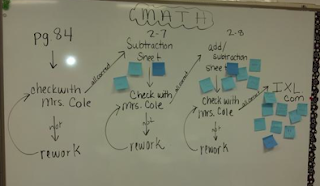 MATH
pg. 84
check with
Mrs. Cole
not
rework
all correct
2-7
Subtraction
Sheet
Check with
Mrs. Cole
rework
all correct
2-8
add/
subtraction
sheet
Check with
Mrs. Cole
rework
all correct
IXL
.com